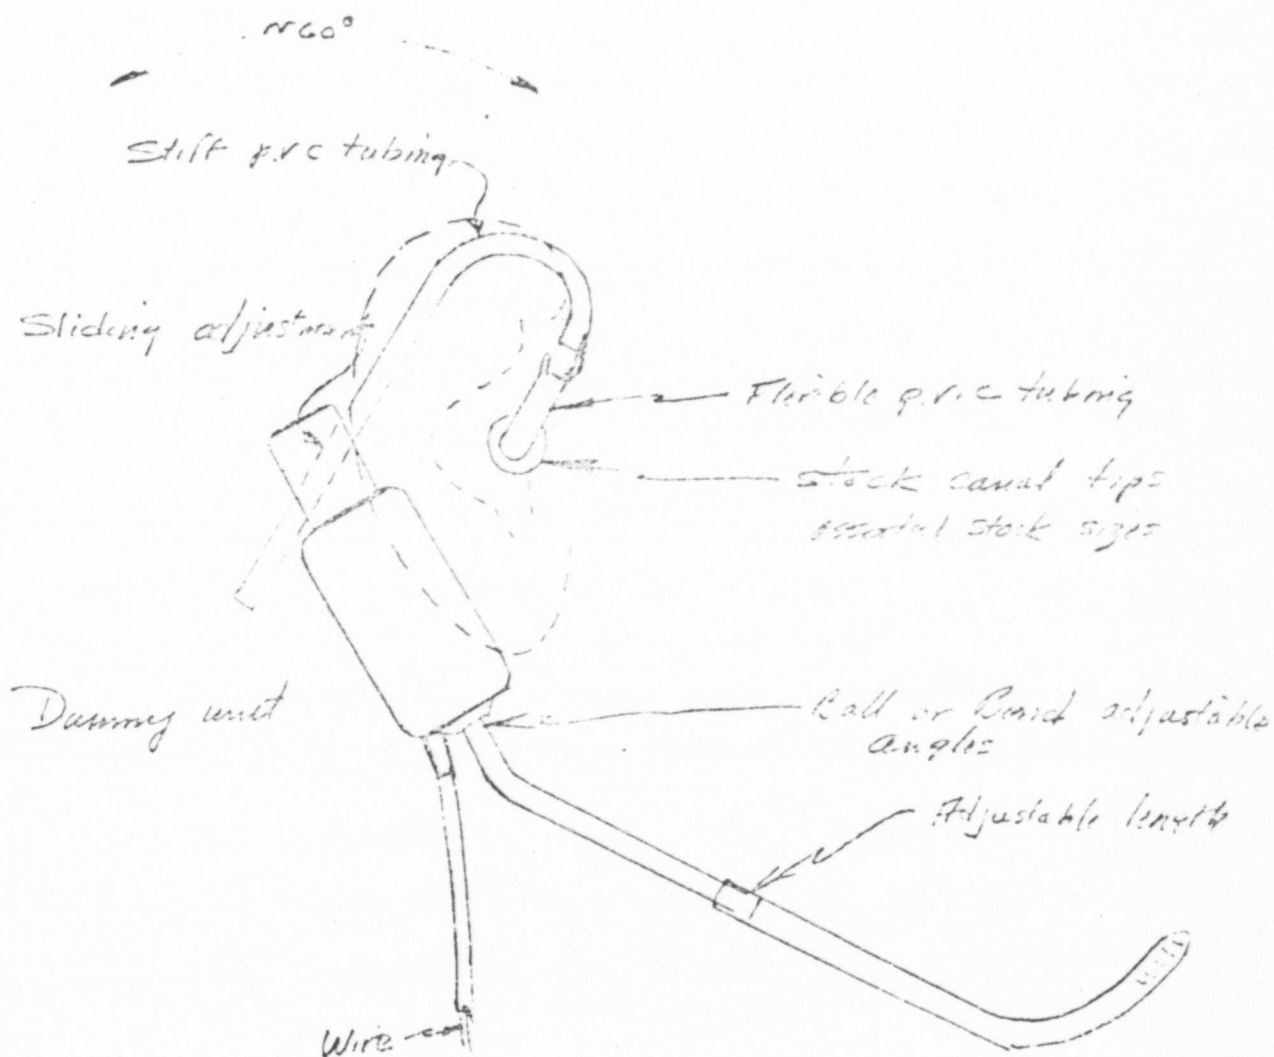 ~60°
Stiff p.v.c tubing
Sliding adjustment
Flexible p.v.c tubing
Stock canal tips
stock sizes
Dummy unit
Ball or Bend adjustable
angles
Adjustable length
Wire